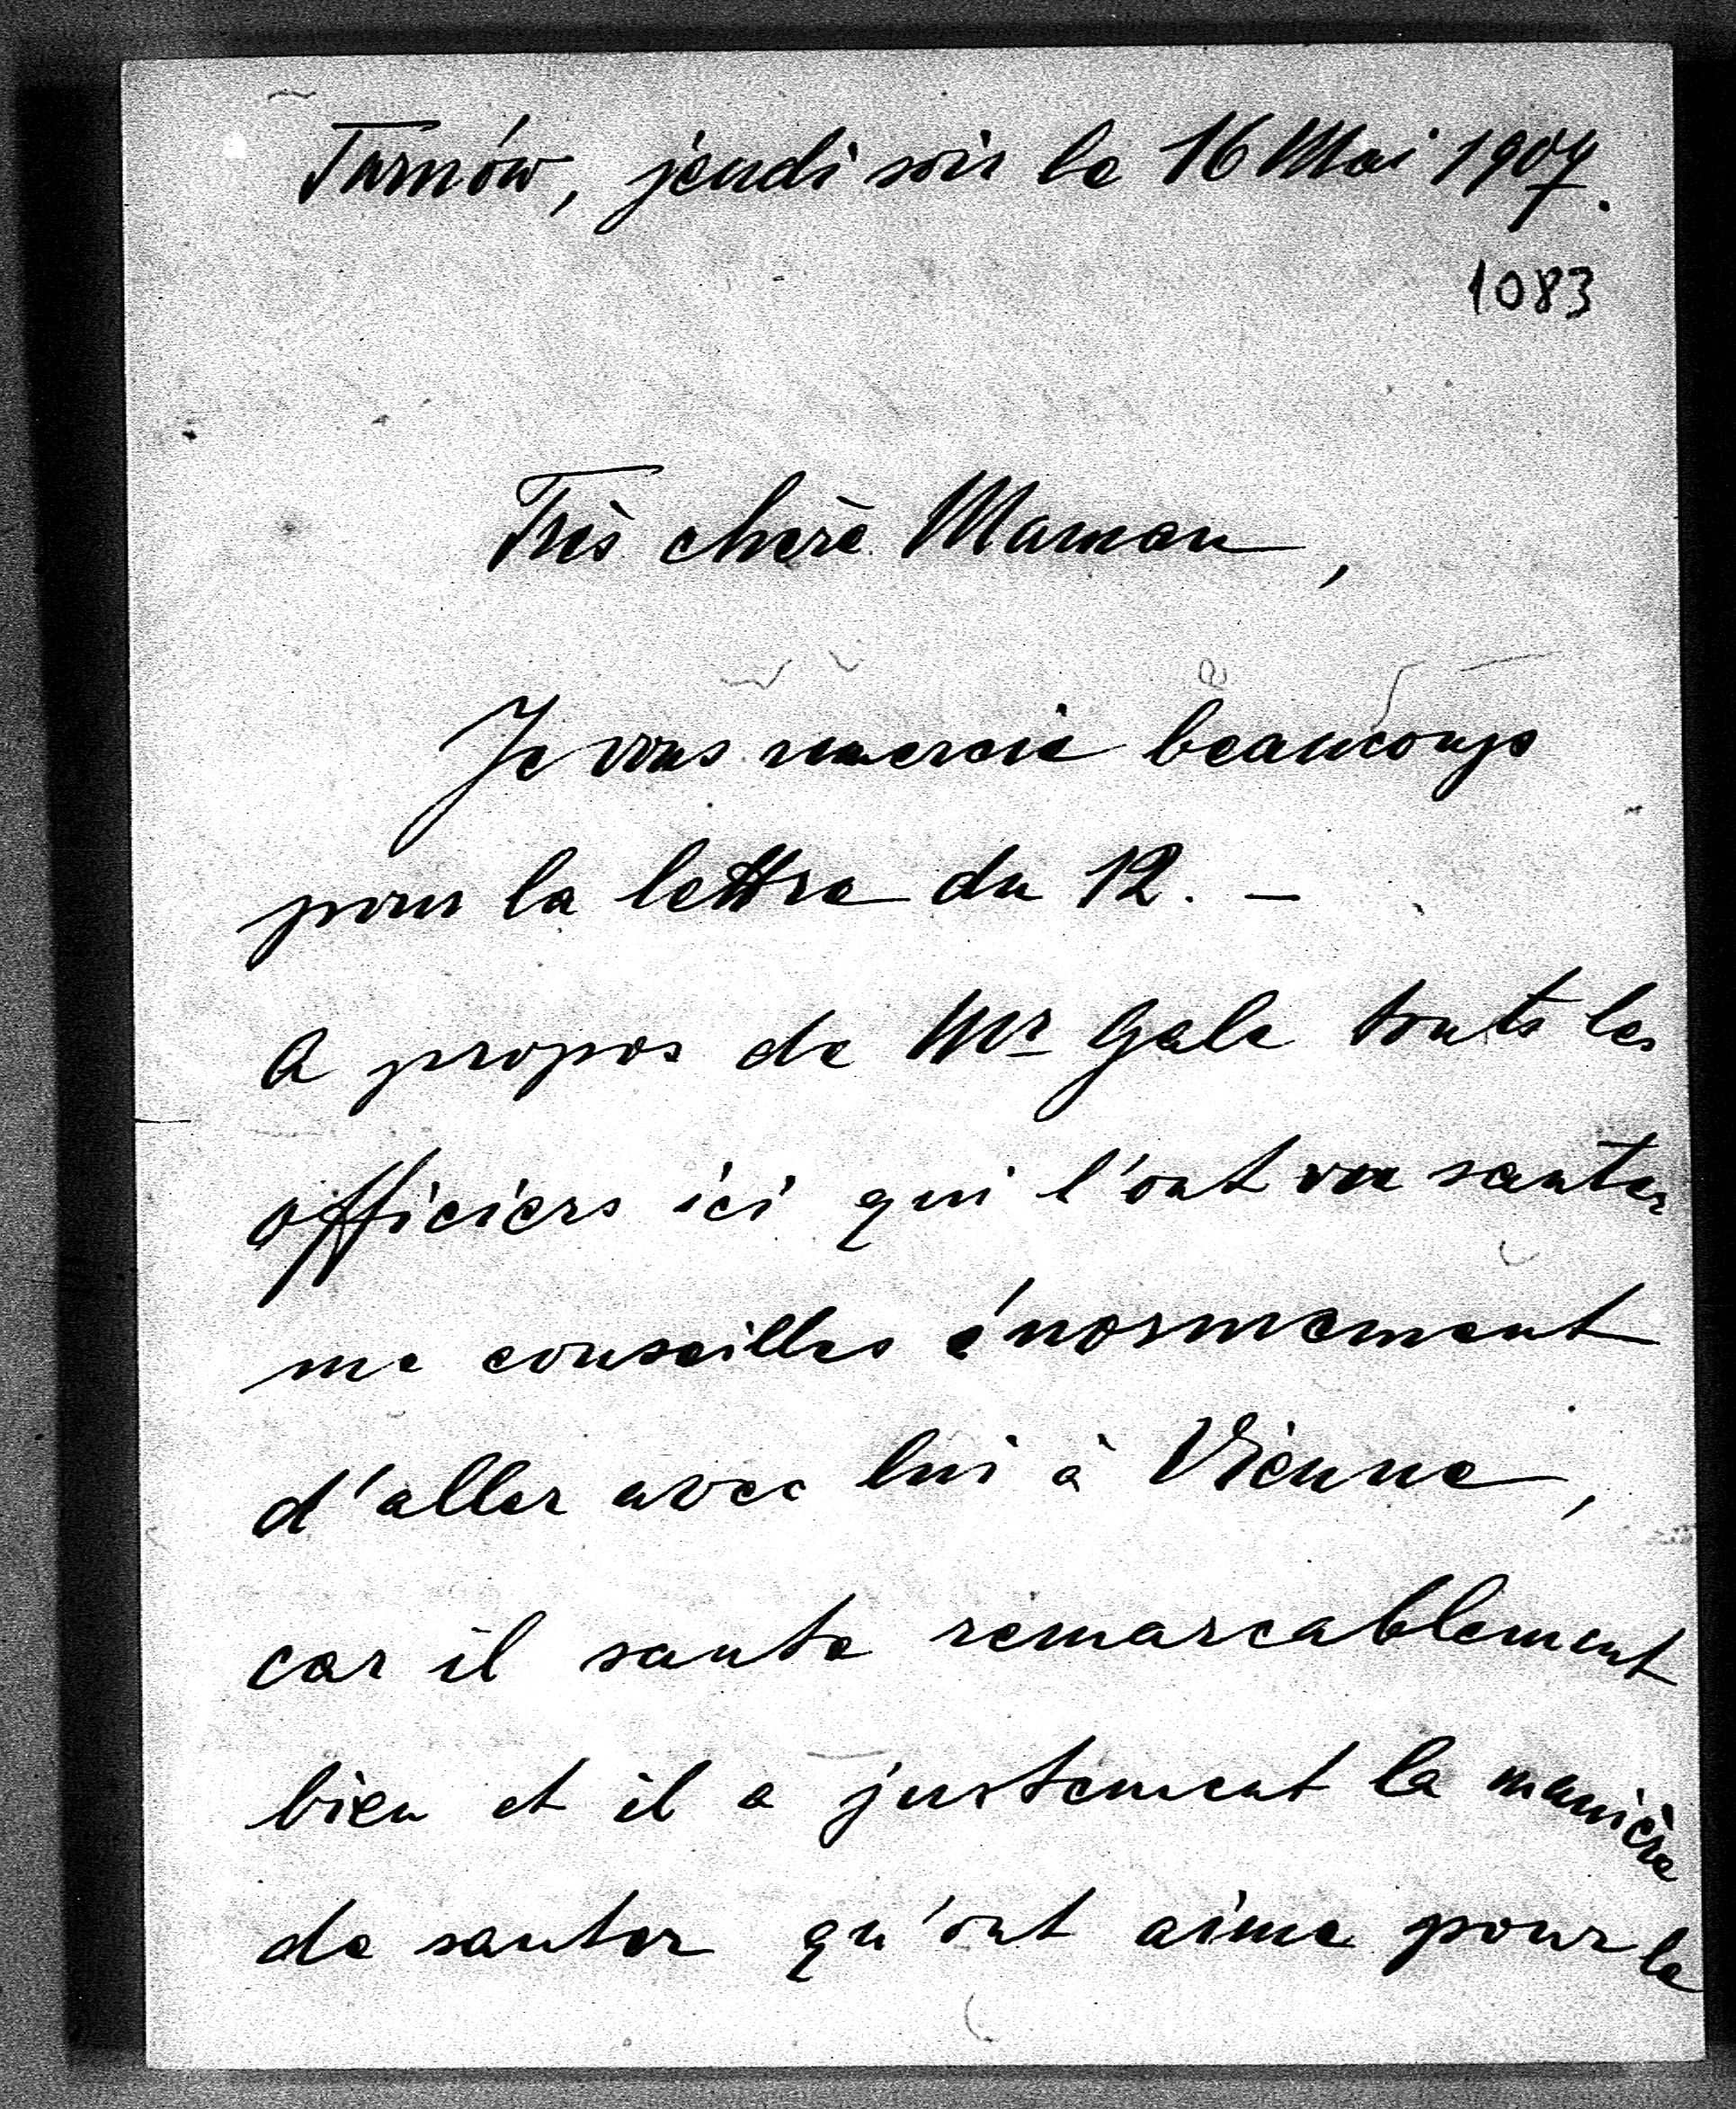 Tarnów, jeudi soir le 16 Mai 1907.
1083
Très chère Maman,
Je vous remercie beaucoup
pour la lettre du 12. —
A propos de Mr Gale touts les
officiers ici qui l'ont vu sauter
me conseilles énormement
d'aller avec lui à Vienne,
car il saute remarcablement
bien et il a justement la manière
de sauter qu'ont aime pour le